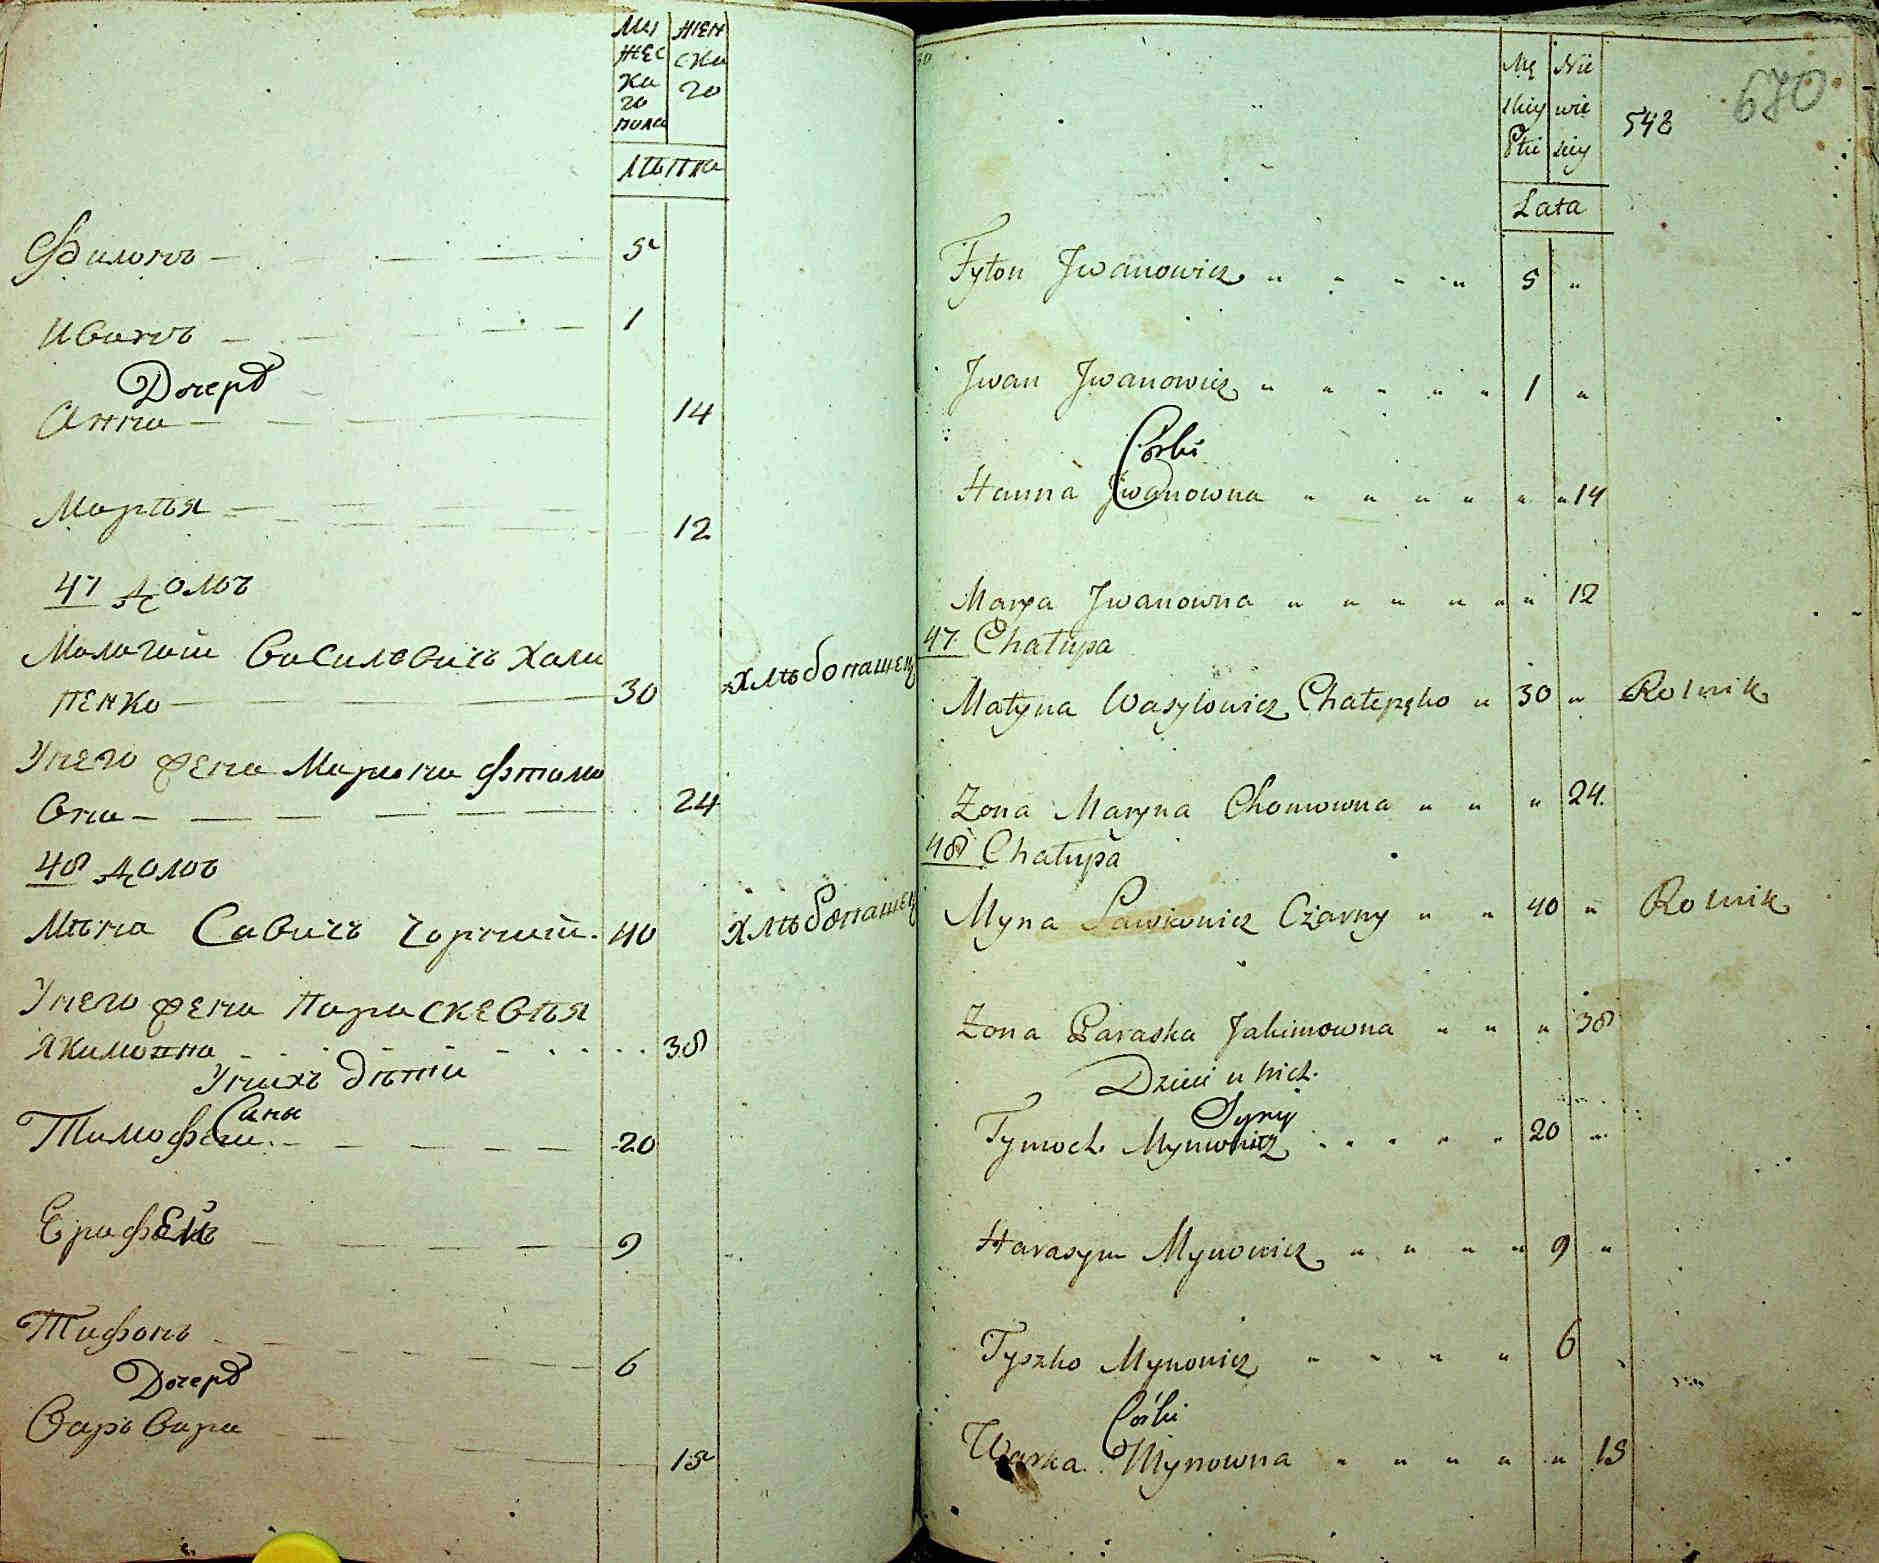 Му
жес
ка
го
пола
женска
го
лѣта
Филонъ 5
Иванъ 1
Дочерѣ
Анна 14
Марья 12
47 домъ
Малогали Василевичъ Хали
пенко 30 хлѣбопашец
У него жена Марина Фтамо
вна 24
48 домъ
Мѣна Савичъ Чорний 40 хлѣбопашец
У него жена Параскевѣя
Якимовна 38
У нихъ дѣти
Сины
Тимофей 20
Ерафей 9
Тифонъ 6
Дочерѣ
Варъвара 15
Mę
skiey
Płci
Nie
wie
sciey
Lata
542
670
Fyłon Jwanowicz " " " " 5 "
Jwan Jwanowicz " " " " " 1 "
Córki
Hanna Jwanowna " " " " " " 14
Marya Jwanowna " " " " " " 12
47 Chałupa
Matyna Wasylowicz Chalepęko " 30 " Rolnik
Zona Maryna Chomowna " " " 24.
48 Chałupa
Myna Sawiowicz Czarny " " 40 " Rolnik
Zona Paraska Jakimowna " " " 38
Dzieci u nich.
Syny
Tymoch Mynowicz " " " " " 20 "
Harasym Mynowicz " " " " 9 "
Tyszko Mynowicz " " " " 6 "
Córki
Warka Mynowna " " " " " 15